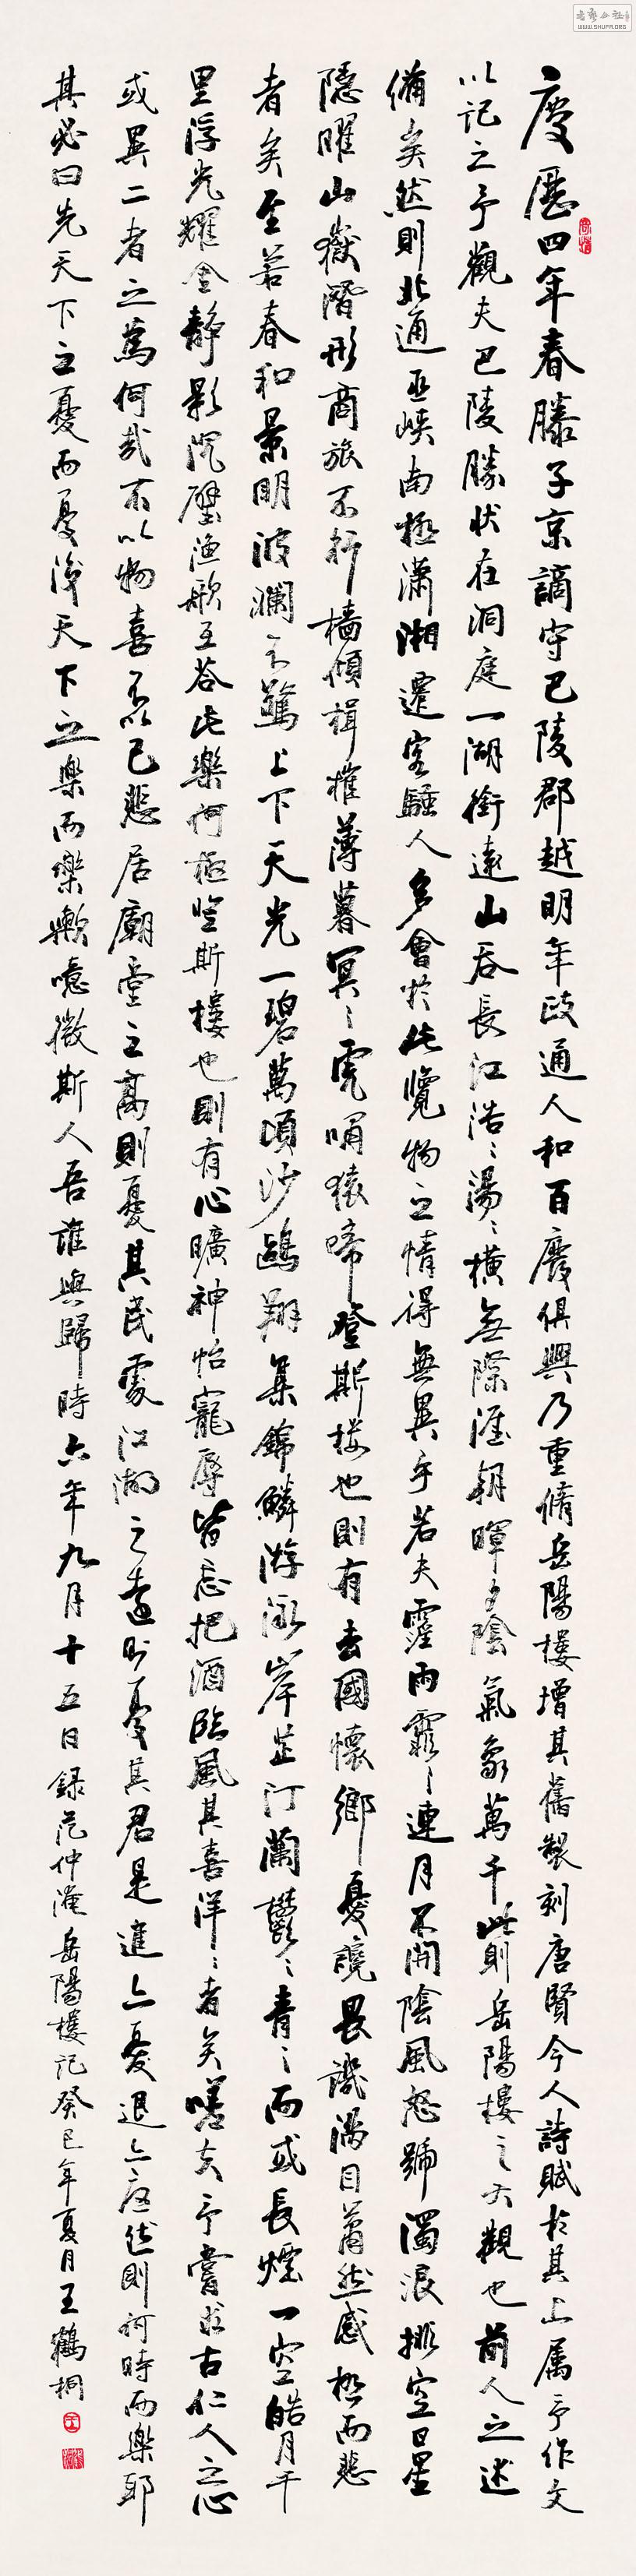 慶曆四年春滕子京謫守巴陵郡越明年政通人和百廢俱興乃重脩岳陽樓增其舊製刻唐賢今人詩賦於其上属予作文
以記之予觀夫巴陵勝状在洞庭一湖銜遠山吞長江浩〻湯〻橫無際涯朝暉夕陰氣象萬千此則岳陽樓之大觀也前人之述
備矣然則北通巫峽南極瀟湘遷客騷人多會於此覽物之情得無異乎若夫霪雨霏〻連月不開陰風怒號濁浪排空日星
隱曜山嶽潛形商旅不行檣傾楫摧薄暮冥〻虎嘯猿啼登斯樓也則有去國懷鄉憂讒畏譏滿目蕭然感極而悲
者矣至若春和景明波瀾不驚上下天光一碧萬頃沙鷗翔集錦鱗游泳岸芷汀蘭鬱〻青〻而或長煙一空皓月千
里浮光耀金静影沉璧漁歌互答此樂何極登斯樓也則有心曠神怡寵辱皆忘把酒臨風其喜洋〻者矣嗟夫予嘗求古仁人之心
或異二者之為何哉不以物喜不以己悲居廟堂之高則憂其民處江湖之遠則憂其君是進亦憂退亦憂然則何時而樂耶
其必曰先天下之憂而憂後天下之樂而樂歟噫微斯人吾誰與歸時六年九月十五日録范仲淹岳陽樓記癸巳年夏月王鶴桐
WWW.SHUFA.ORG